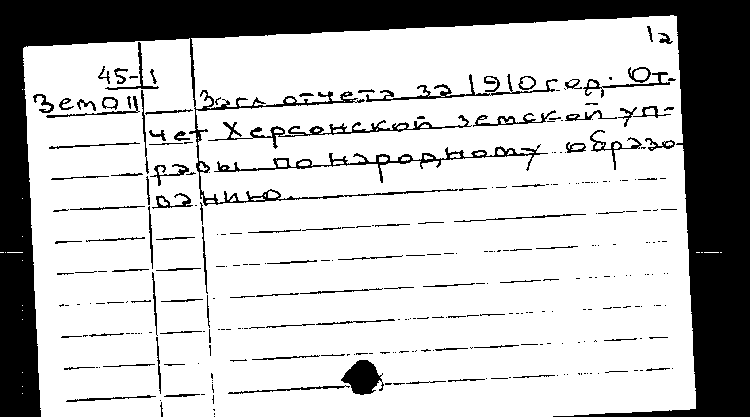 12
45-1
Зем011 Загл отчета за 1910 год: От-
чет Херсонской земской уп-
равы по народному образо-
ванию.